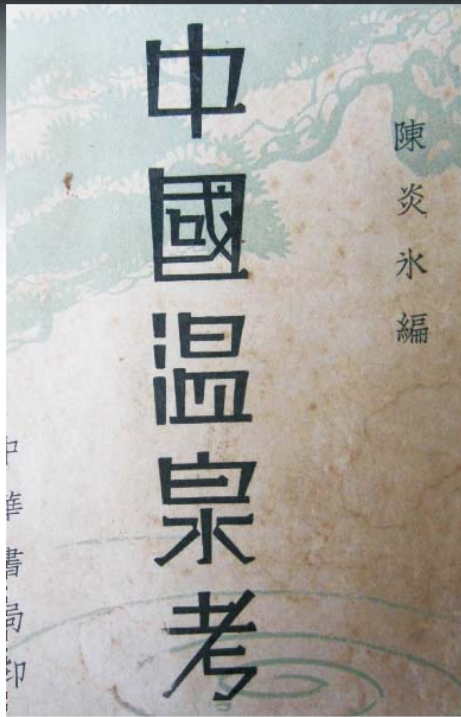 陳炎冰編
中國温泉考
中華書局印